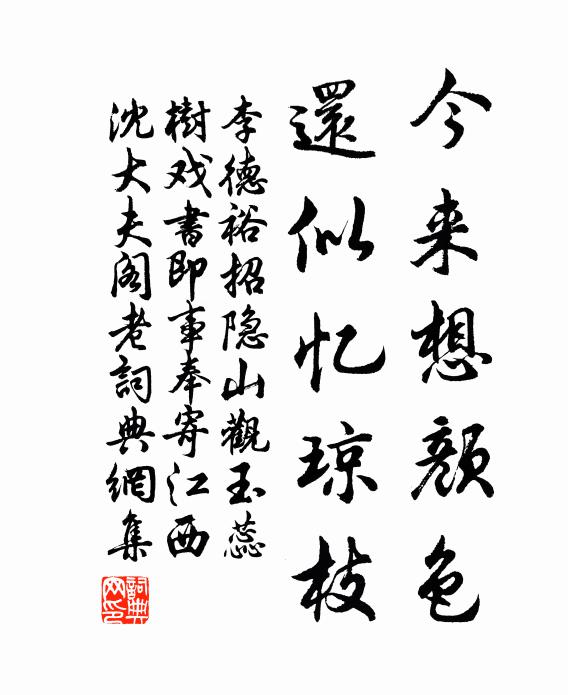 今来想颜色
還似忆琼枝
李德裕招隐山觀玉蕊
樹戏書即事奉寄江西
沈大夫阁老詞典網集
詞典网印